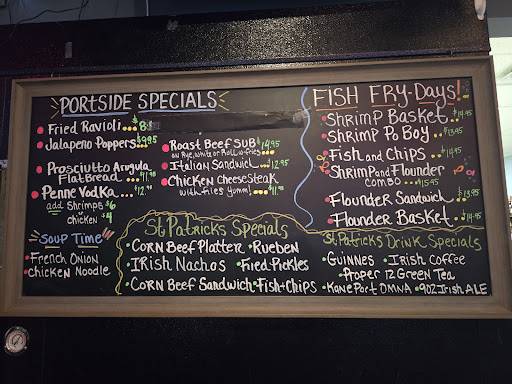 PORTSIDE SPECIALS
Fried Ravioli...$8
Jalapeño Poppers...$9.95
Prosciutto Arugula
FlatBread...
Penne Vodka...$12.
add Shrimp $6
or chicken $4
SOUP TIME
French Onion
Chicken Noodle
Roast Beef Sub $14.95
on Rye, White or Roll w-fries
Italian Sandwich... $12.95
Chicken Cheesesteak
with fries yumm!...$11.
FISH FRY-Days!
Shrimp Basket..$14.95
Shrimp Po Boy ..$13.95
Fish and Chips ..$14.95
Shrimp and Flounder
combo ...$15.95
Flounder Sandwich..$13.95
Flounder Basket..$14.95
St Patricks Specials
Corn Beef Platter • Rueben
IRish Nachos • Fried Pickles
Corn Beef Sandwich • Fish + Chips
St Patricks Drink Specials
Guinnes • Irish Coffee
Proper 12 Green Tea
Kane Port OMNA • 902 Irish ALE